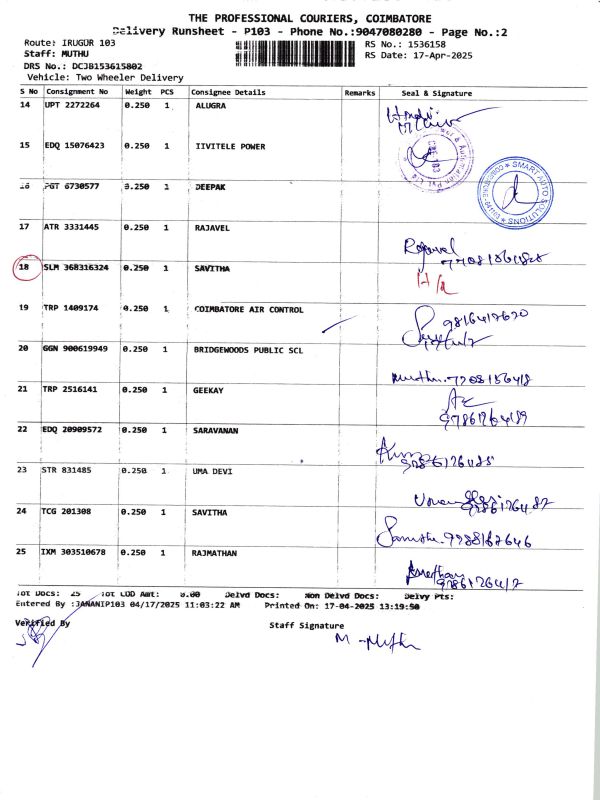 THE PROFESSIONAL COURIERS, COIMBATORE
Delivery Runsheet - P103 - Phone No.:9047080280 - Page No.:2
Route: IRUGUR 103
RS No.: 1536158
Staff: MUTHU
RS Date: 17-Apr-2025
DRS No.: DCJB153615802
Vehicle: Two Wheeler Delivery
S No Consignment No Weight PCS Consignee Details Remarks Seal & Signature
14 UPT 2272264 0.250 1 ALUGRA
15 EDQ 15076423 0.250 1 IIVITELE POWER
16 PGT 6730577 0.250 1 DEEPAK
SMART AUTO SOLUTIONS
17 ATR 3331445 0.250 1 RAJAVEL
Rajavel
18 SLM 368316324 0.250 1 SAVITHA
19 TRP 1409174 0.250 1 COIMBATORE AIR CONTROL
20 GGN 900619949 0.250 1 BRIDGEWOODS PUBLIC SCL
7708156418
21 TRP 2516141 0.250 1 GEEKAY
22 EDQ 20909572 0.250 1 SARAVANAN
23 STR 831485 0.250 1 UMA DEVI
24 TCG 201308 0.250 1 SAVITHA
25 IXM 303510678 0.250 1 RAJMATHAN
Tot Docs: 25 Tot COD Amt: 0.00 Delvd Docs: Non Delvd Docs: Delvy Pts:
Entered By :JANANIP103 04/17/2025 11:03:22 AM Printed On: 17-04-2025 13:19:50
Verified By
Staff Signature